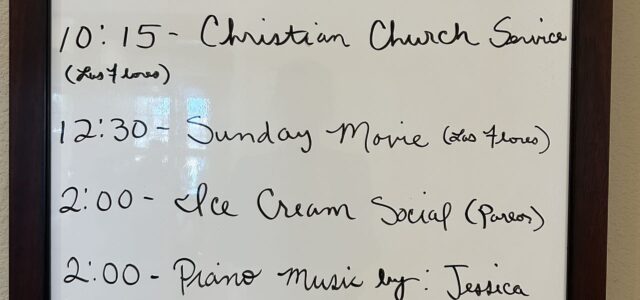 10:15- Christian Church Service
(Las Flores)
12:30- Sunday Movie (Las Flores)
2:00- Ice Cream Social
2:00- Piano Music by: Jessica